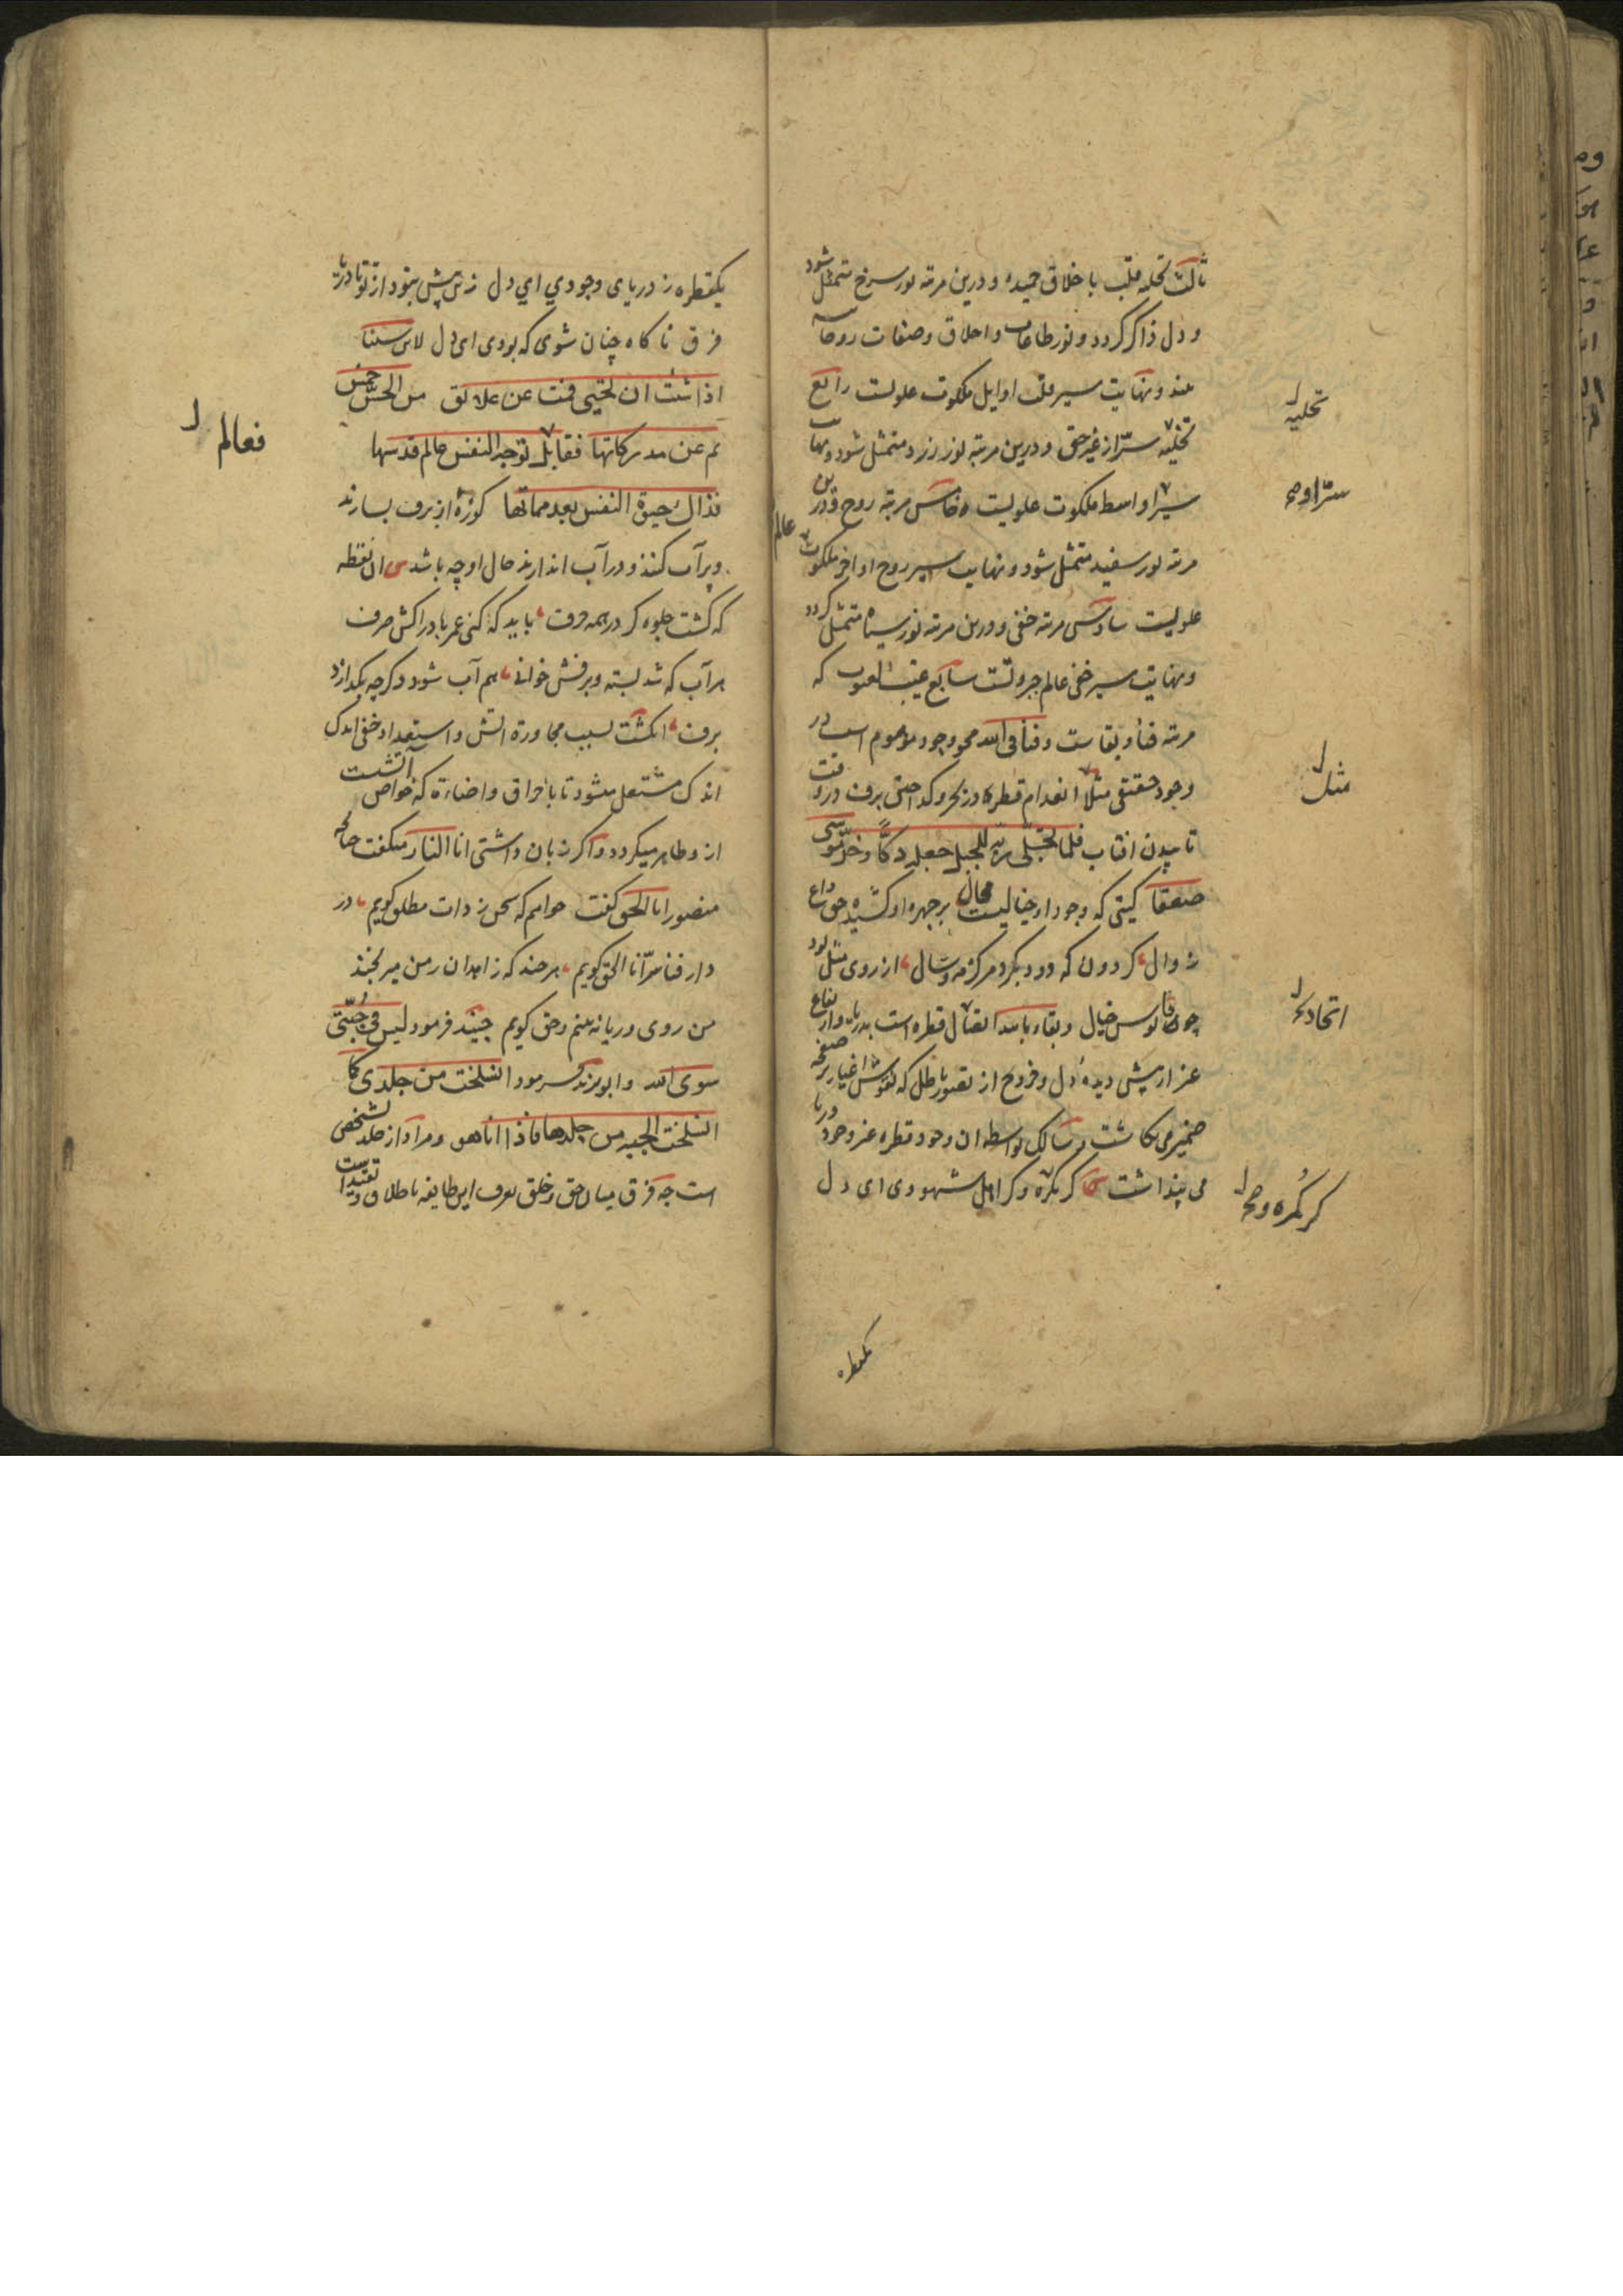 ثالث تحلیه قلب باخلاق حمیده و درین مرتبه نور سرخ متمثل شود
و دل ذاکر کردد و نور طاعات و اخلاق و صفات روحا
بیند و نهایت سیر قلب اوایل ملکوت علویست رابع
تخلیه سرّ از غیر حق و درین مرتبه نور زرد متمثل شود و نهایت
سیر اواسط ملکوت علویست خامس مرتبه روح و درین
مرتبه نور سفید متمثل شود و نهایت سیر روح اواخر ملکوت
عالم
علویست سادس مرتبه خفی و درین مرتبه نور سیاه متمثل کردد
و نهایت سیر خفی عالم جبروتست سابع غیب الغیوب که
مرتبه فنا و بقاست و فنا فی الله محو وجود موهوم است در
وجود حقیقی مثلا انعدام قطره در بحر و کداختن برف در وقت
تابیدن افتاب فلما تجلّی ربّه للجبل جعله دکّا و خرّ موسی
صعقا کیتی که وجود او خیالیست محال بر چهره او کشیده حق داغ
زوال کردون که دود بکرد مرکز مه و سال از روی مثل بود
چو فانوس خیال و بقاء بالله اتصال قطره است بدریا و ارتفاع
غیر از پیش دیده دل و خروج از تصور باطل که نقوش اغیار بر صفحه
ضمیر می نکاشت و سالک بواسطه ان وجود قطره غیر وجود دریا
می پنداشت کر نکره و کر اهل شهودی ای دل
تحلیه
سرّ او صح
مثل
اتحاد صح
کر نکُره صح
یکقطره
یکقطره ز دریای وجودی ای دل زین پیش نبود از تو تا دریا
فرق ناکاه چنان شوی که بودی ای دل لابن سینا
اذا شئت ان تحیی فمت عن علائق من الحسّ خمس
ثم عن مدرکاتها فقابل توجه النفس عالم قدسها
فذاک حیوة النفس بعد مماتها کوزهٔ از برف بسازند
و پر آب کنند و در آب اندازند حال او چه باشد ان نقطه
که کشت جلوه کر در همه حرف باید که کنی عمر بادراکش صرف
هر آب که شد بسته و برفش خوانی هم آب شود دکر چه بکدازد
برف انکشت بسبب مجاورة اتش و استعداد خفی اندک
اندک مشتعل میشود تا باحراق و اضاءة که خواص آتشست
ازو ظاهر میکردد و اکر زبان داشتی انا النار میکفت چنانچه
منصور انا الحق کفت خواهم که سخن ز ذات مطلق کویم در
دار فنا سرّ انا الحق کویم هر چند که زاهدان ز من میرنجند
من روی و ریا نه بینم و حق کویم جنید فرمود لیس فی جُبّتی
سوی الله و ابویزید فرمود انسلخت من جلدی کما
انسلخت الحیه من جلدها فاذا انا هو و مراد از جلد تشخص
است چه فرق میان حق و خلق بعرف این طایفه باطلاق و تقیید است
فعالم